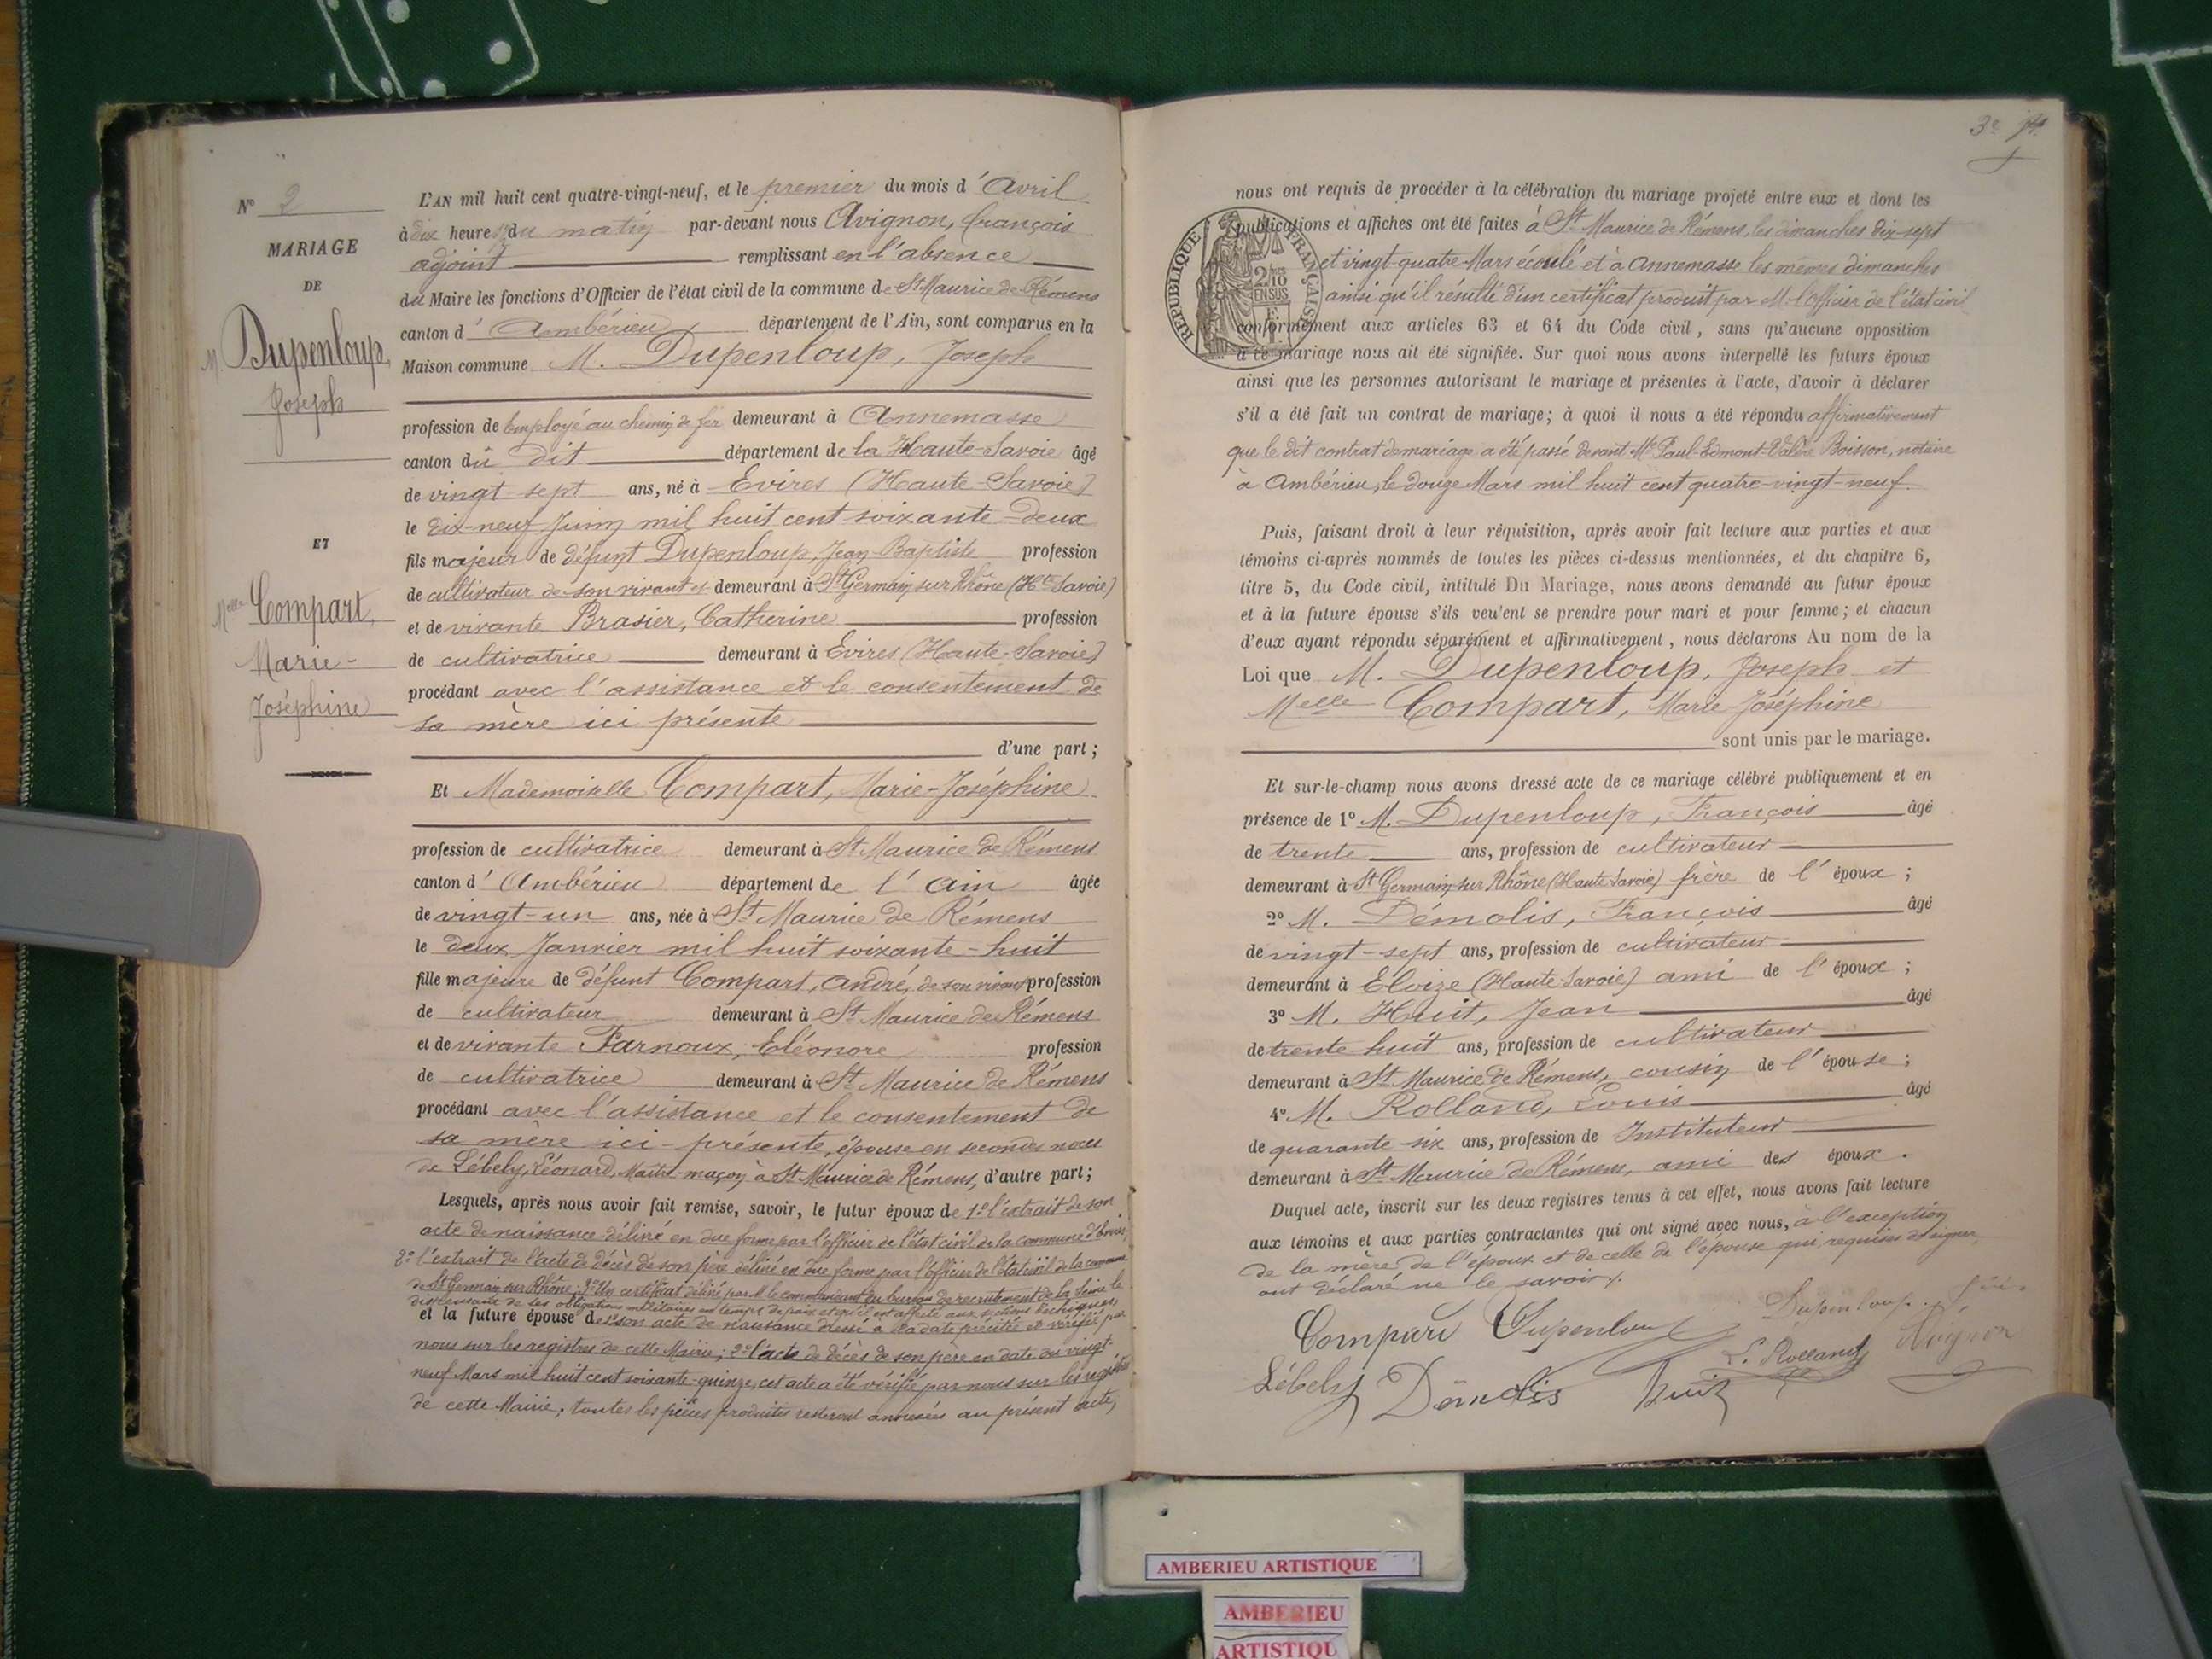 N° 2
MARIAGE
DE
M. Dupenloup,
Joseph
ET
Melle Compart,
Marie-
Joséphine
L'AN mil huit cent quatre-vingt-neuf, et le premier du mois d'Avril
à dix heures du matin par-devant nous Avignon, françois
adjoint remplissant en l'absence
du Maire les fonctions d'Officier de l'état civil de la commune de St Maurice de Rémens
canton d'Ambérieu département de l'Ain, sont comparus en la
Maison commune M. Dupenloup, Joseph
profession de Employé au chemin de fer demeurant à Annemasse
canton du dit département de la Haute-Savoie âgé
de vingt-sept ans, né à Evires (Haute-Savoie)
le dix-neuf Juin mil huit cent soixante-deux
fils majeur de défunt Dupenloup, Jean-Baptiste profession
de cultivateur de son vivant et demeurant à St Germain sur Rhône (Hte Savoie)
et de vivante Brasier, Catherine profession
de cultivatrice demeurant à Evires (Haute-Savoie)
procédant avec l'assistance et le consentement de
sa mère ici présente
d'une part ;
Et Mademoiselle Compart, Marie-Joséphine
profession de cultivatrice demeurant à St Maurice de Rémens
canton d'Ambérieu département de l'Ain âgée
de vingt-un ans, née à St Maurice de Rémens
le deux Janvier mil huit soixante-huit
fille majeure de défunt Compart, André, de son vivant profession
de cultivateur demeurant à St Maurice de Rémens
et de vivante Farnoux, Eléonore profession
de cultivatrice demeurant à St Maurice de Rémens
procédant avec l'assistance et le consentement de
sa mère ici-présente, épouse en secondes noces
de Lébely, Léonard, Maître-maçon à St Maurice de Rémens, d'autre part ;
Lesquels, après nous avoir fait remise, savoir, le futur époux de 1° l'extrait de son
acte de naissance délivré en due forme par l'officier de l'état civil de la commune d'Evires,
2° l'extrait de l'acte de décès de son père délivré en due forme par l'officier de l'état civil de la commune
de St Germain sur Rhône ; 3° Un certificat délivré par M. le commandant du bureau de recrutement de la Seine le
dispensant de ses obligations militaires en temps de paix et qu'il est affecté aux sections techniques,
et la future épouse de son acte de naissance dressé à la date précitée et vérifié par
nous sur les registres de cette Mairie ; 2° l'acte de décès de son père en date du vingt-
neuf Mars mil huit cent soixante-quinze, cet acte a été vérifié par nous sur les registres
de cette Mairie ; toutes les pièces produites resteront annexées au présent acte,
3e
nous ont requis de procéder à la célébration du mariage projeté entre eux et dont les
publications et affiches ont été faites à St Maurice de Rémens, les dimanches dix-sept
et vingt-quatre Mars écoulé et à Annemasse les mêmes dimanches
ainsi qu'il résulte d'un certificat produit par M. l'officier de l'état civil
RÉPUBLIQUE FRANÇAISE
2/10
EN SUS
conformément aux articles 63 et 64 du Code civil, sans qu'aucune opposition
à ce mariage nous ait été signifiée. Sur quoi nous avons interpellé les futurs époux
ainsi que les personnes autorisant le mariage et présentes à l'acte, d'avoir à déclarer
s'il a été fait un contrat de mariage ; à quoi il nous a été répondu affirmativement
que le dit contrat de mariage a été passé devant Me Paul-Edmont-Valère Boisson, notaire
à Ambérieu, le douze Mars mil huit cent quatre-vingt-neuf.
Puis, faisant droit à leur réquisition, après avoir fait lecture aux parties et aux
témoins ci-après nommés de toutes les pièces ci-dessus mentionnées, et du chapitre 6,
titre 5, du Code civil, intitulé Du Mariage, nous avons demandé au futur époux
et à la future épouse s'ils veu'ent se prendre pour mari et pour femme ; et chacun
d'eux ayant répondu séparément et affirmativement, nous déclarons Au nom de la
Loi que M. Dupenloup, Joseph et
Melle Compart, Marie Joséphine
sont unis par le mariage.
Et sur-le-champ nous avons dressé acte de ce mariage célébré publiquement et en
présence de 1° M. Dupenloup, François âgé
de trente ans, profession de cultivateur
demeurant à St Germain sur Rhône (Haute Savoie) frère de l'époux ;
2° M. Démolis, François âgé
de vingt-sept ans, profession de cultivateur
demeurant à Eloize (Haute Savoie) ami de l'époux ;
3° M. Huit, Jean âgé
de trente-huit ans, profession de cultivateur
demeurant à St Maurice de Rémens, cousin de l'épouse ;
4° M. Rolland, Louis âgé
de quarante-six ans, profession de Instituteur
demeurant à St Maurice de Rémens, ami des époux.
Duquel acte, inscrit sur les deux registres tenus à cet effet, nous avons fait lecture
aux témoins et aux parties contractantes qui ont signé avec nous, à l'exception
de la mère de l'époux et de celle de l'épouse qui requises de signer
ont déclaré ne le savoir.
Compart Dupenloup Dupenloup
Lébely Démolis Huit L. Rolland
AMBERIEU ARTISTIQUE
AMBERIEU
ARTISTIQU